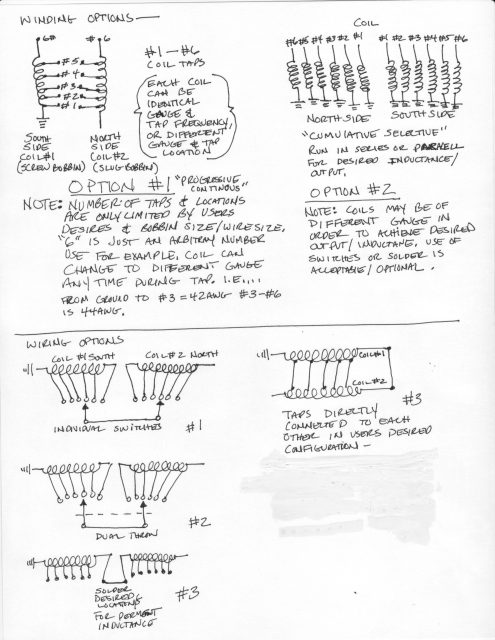 WINDING OPTIONS—
6#
#6
#5
#4
#3
#2
#1
SOUTH
SIDE
COIL#1
(SCREW BOBBIN)
NORTH
SIDE
COIL#2
(SLUG BOBBIN)
#1 — #6
COIL TAPS
EACH COIL
CAN BE
IDENTICAL
GAUGE &
TAP FREQUENCY,
OR DIFFERENT
GAUGE & TAP
LOCATION
OPTION #1 "PROGRESSIVE
CONTINOUS"
NOTE: NUMBER OF TAPS & LOCATIONS
ARE ONLY LIMITED BY USERS
DESIRES & BOBBIN SIZE/WIRE SIZE,
"6" IS JUST AN ARBITRARY NUMBER
USE FOR EXAMPLE, COIL CAN
CHANGE TO DIFFERENT GAUGE
ANY TIME DURING TAP. I.E....
FROM GROUND TO #3=42AWG #3-#6
IS 44AWG.
COIL
#6 #5 #4 #3 #2 #1
#1 #2 #3 #4 #5 #6
NORTH SIDE
SOUTH SIDE
"CUMULATIVE SELECTIVE"
RUN IN SERIES OR PARALLELL
FOR DESIRED INDUCTANCE/
OUTPUT,
OPTION #2
NOTE: COILS MAY BE OF
DIFFERENT GAUGE IN
ORDER TO ACHIEVE DESIRED
OUTPUT/INDUCTANE, USE OF
SWITCHES OR SOLDER IS
ACCEPTABLE/OPTIONAL.
WIRING OPTIONS
COIL #1 SOUTH
COIL#2 NORTH
INDIVIDUAL SWITCHES
#1
DUAL THROW
#2
SOLDER
DESIRED
LOCATIONS
FOR PERMENT
INDUCTANCE
#3
COIL#1
COIL#2
#3
TAPS DIRECTLY
CONNECTED TO EACH
OTHER IN USERS DESIRED
CONFIGURATION —